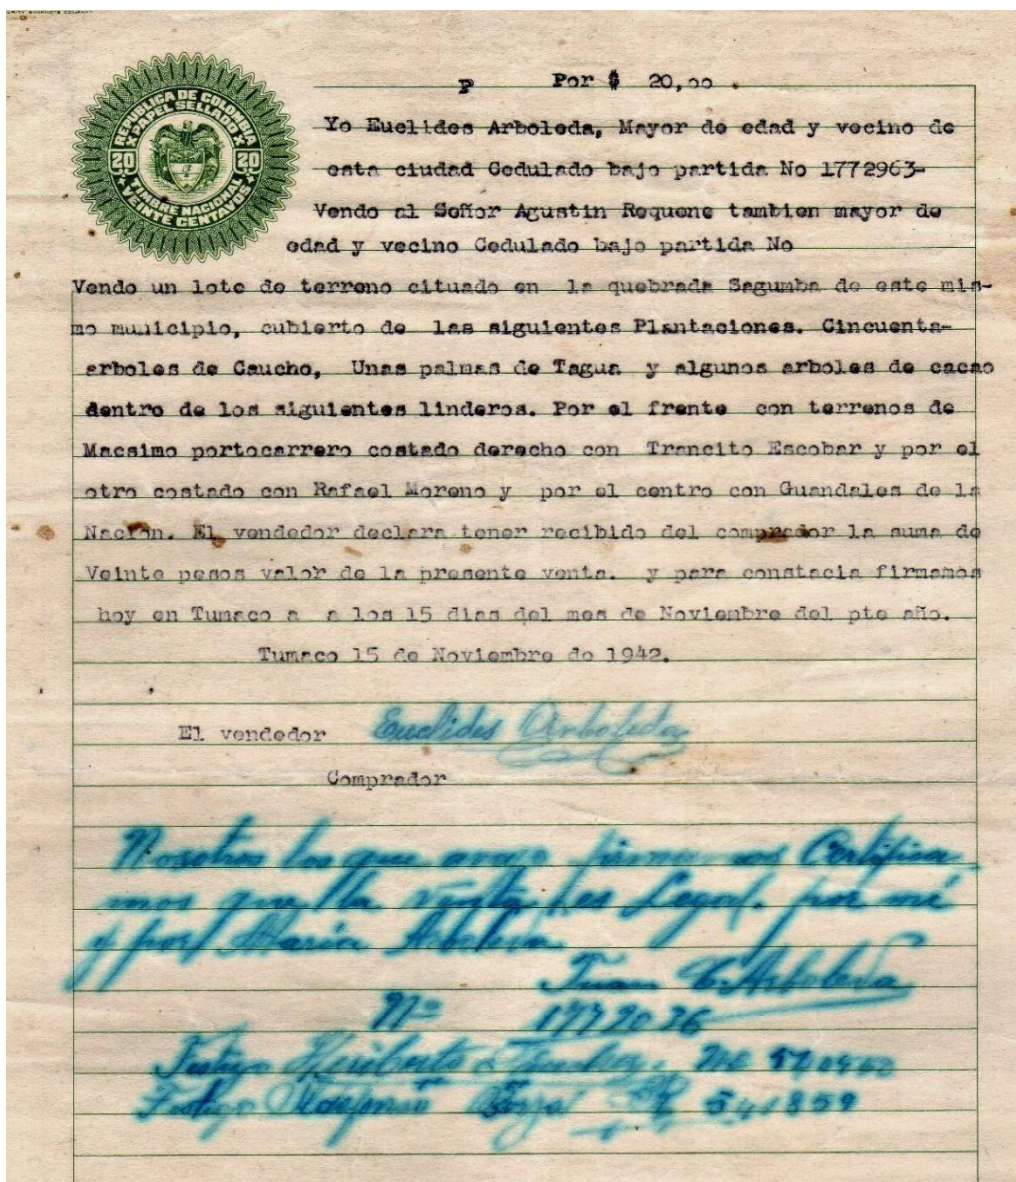 REPUBLICA DE COLOMBIA
PAPEL SELLADO
20 20
TIMBRE NACIONAL
VEINTE CENTAVOS
P Por $ 20,00 .
Yo Euclides Arboleda, Mayor de edad y vecino de
esta ciudad Cedulado bajo partida No 1772963-
Vendo al Señor Agustin Requene tambien mayor de
edad y vecino Cedulado bajo partida No
Vendo un lote de terreno cituado en la quebrada Sagumba de este mis-
mo municipio, cubierto de las siguientes Plantaciones. Cincuenta-
arboles de Caucho, Unas palmas de Tagua y algunos arboles de cacao
dentro de los siguientes linderos. Por el frente con terrenos de
Macsimo portocarrero costado derecho con Trancito Escobar y por el
otro costado con Rafael Moreno y por el centro con Guandales de la
Nacion. El vendedor declara tener recibido del comprador la suma de
Veinte pesos valor de la presente venta. y para constacia firmamos
hoy en Tumaco a a los 15 dias del mes de Noviembre del pte año.
Tumaco 15 de Noviembre de 1942.
El vendedor Euclides Arboleda
Comprador
Nosotros los que avajo firmamos Certifica
mos que la venta es Legal. por mí
y por María Arboleda
Juan C. Arboleda
Nº 1772036
Testigo Heriberto No
Testigo Borja 541859